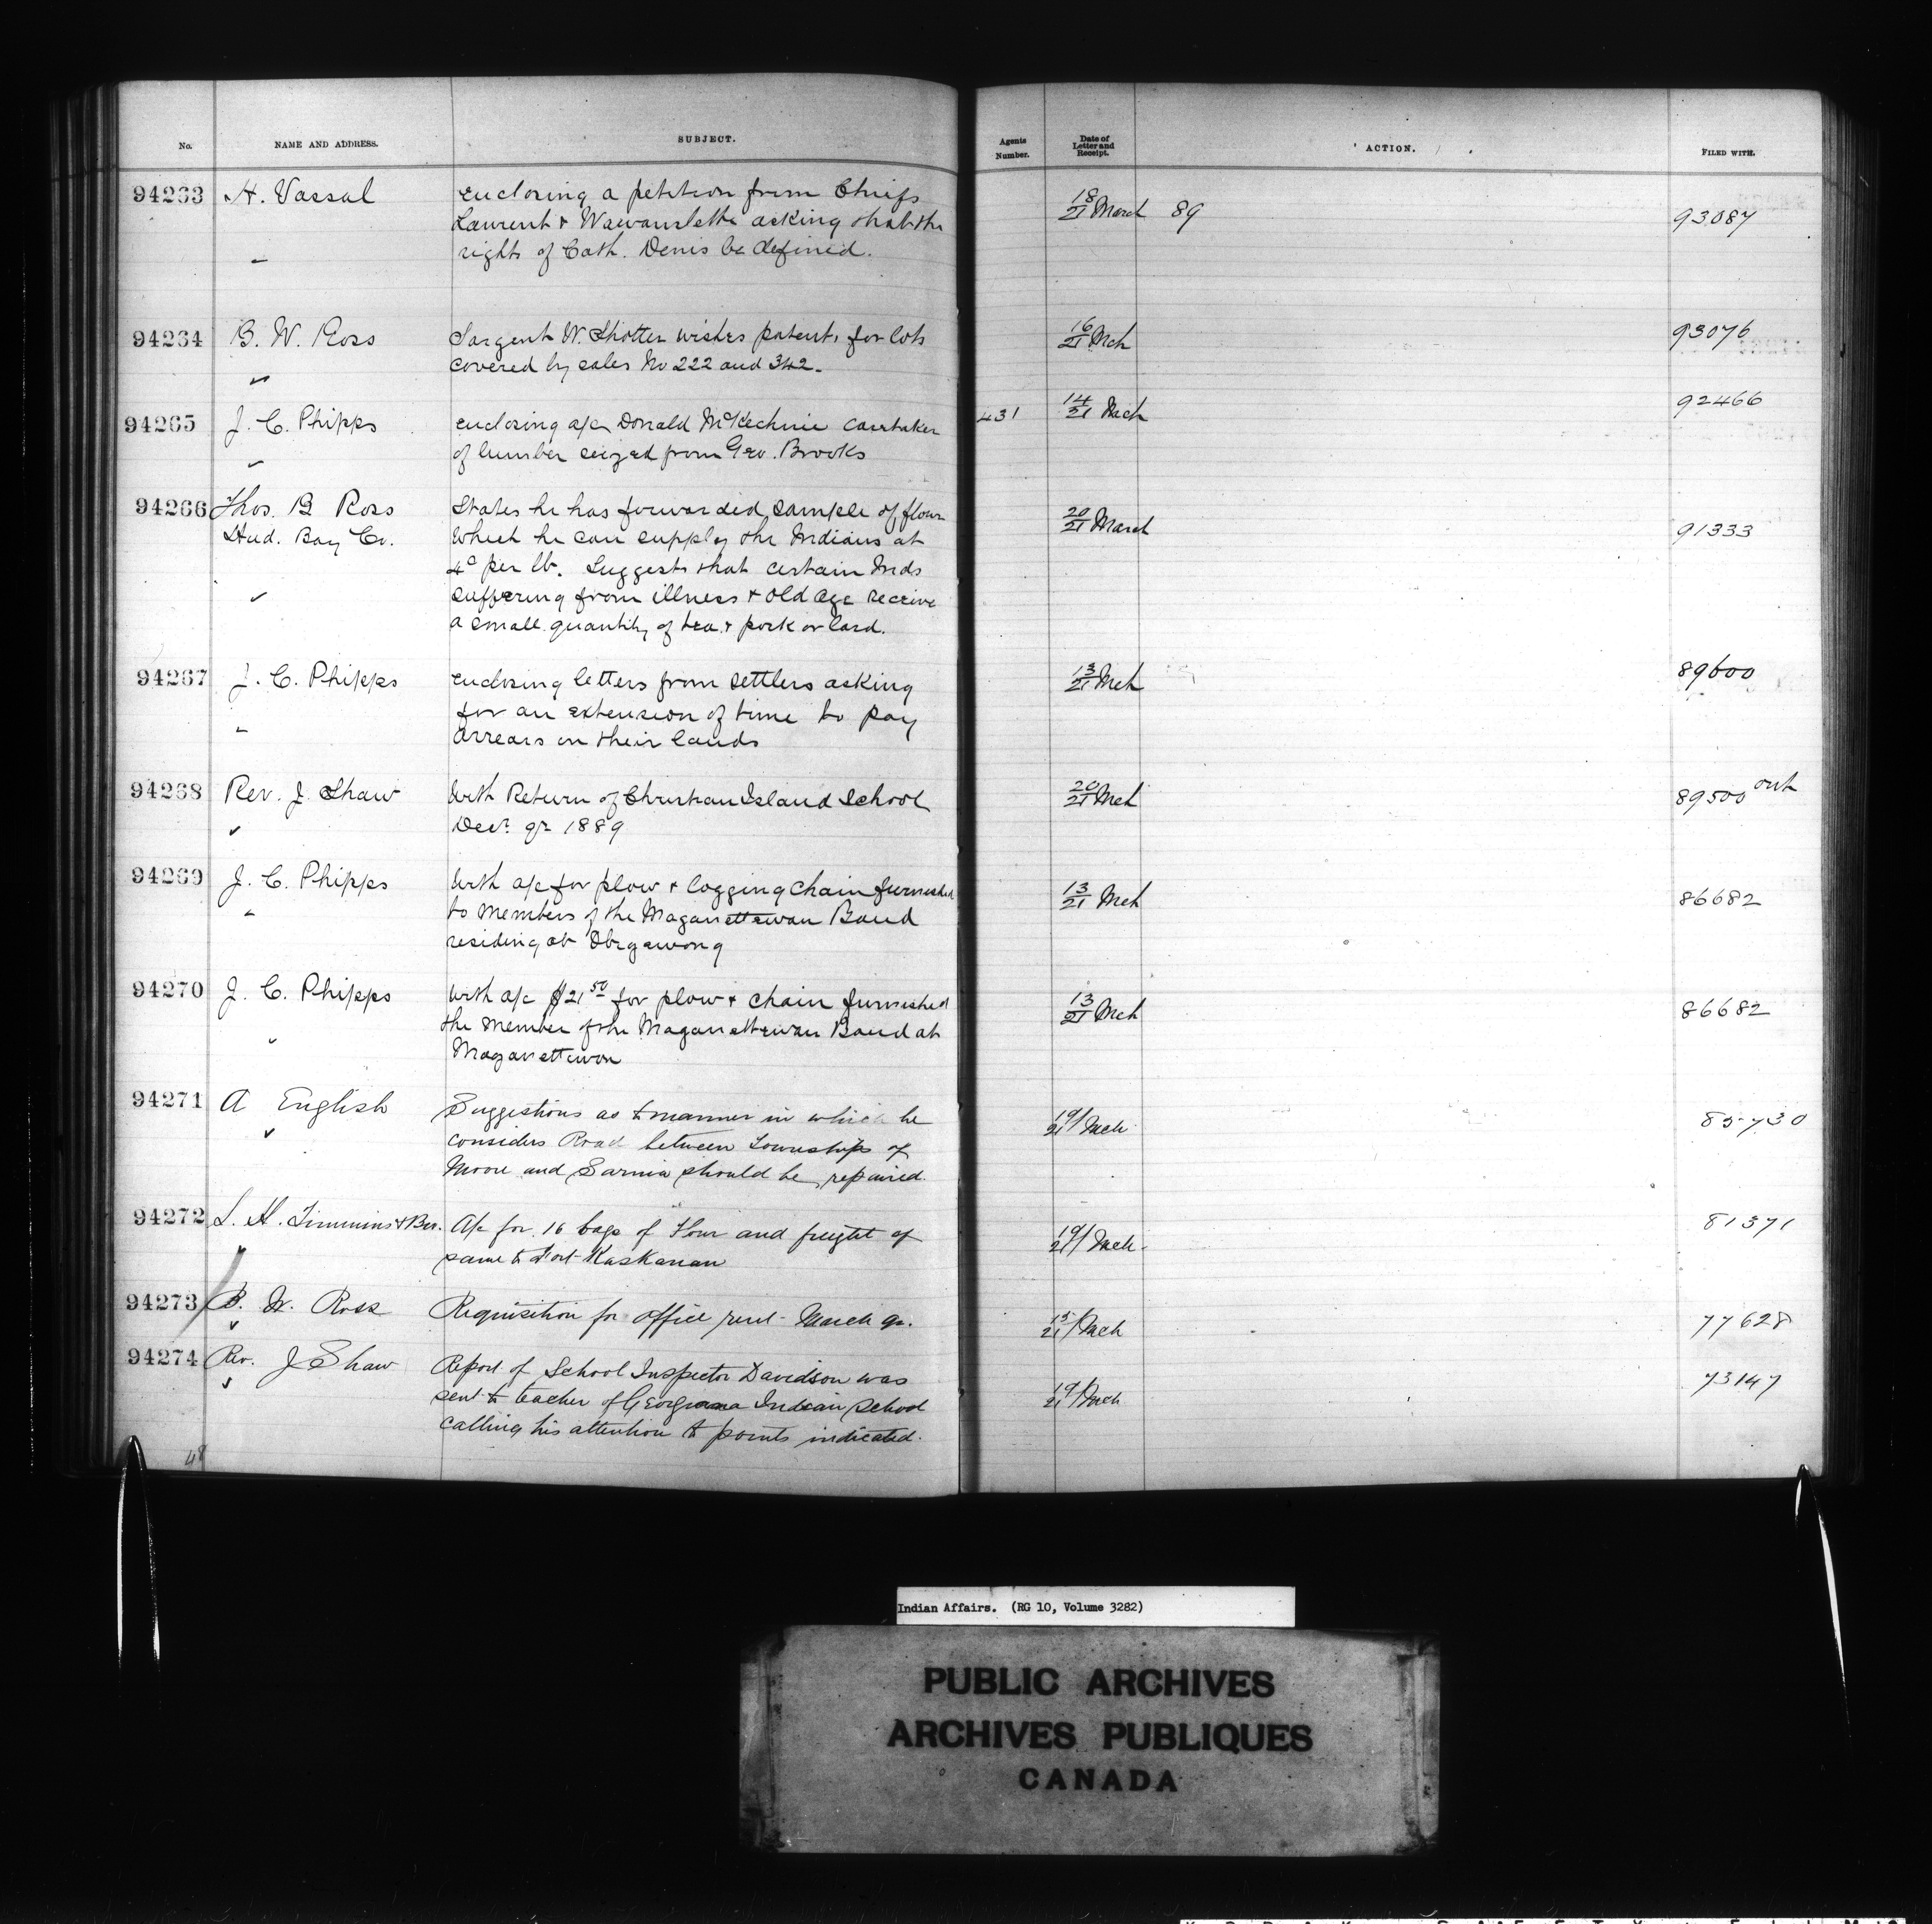 No. NAME AND ADDRESS. SUBJECT. Agents Number. Date of Letter and Receipt. ACTION. FILED WITH.
94263 H. Vassal enclosing a petition from Chiefs 18/21 March 89 93087
Laurent & asking that the
rights of Cath. Denis be defined.
94264 B. W. Ross Sargent W. Shotter wishes patents for lots 16/21 Mch 93076
covered by sales No 222 and 342.
94265 J. C. Phipps enclosing a/c Donald McKechnie caretaker 431 14/21 Mch 92466
of lumber seized from Geo. Brooks
94266 Thos. B Ross States he has forwarded sample of flour 20/21 March 91333
Hud. Bay Co. which he can supply the Indians at
4c per lb. Suggests that certain Inds
suffering from illness & old age receive
a small quantity of tea & pork or lard.
94267 J. C. Phipps enclosing letters from settlers asking 13/21 Mch 89600
for an extension of time to pay
arrears on their lands
94268 Rev. J. Shaw With Return of Christian Island School 20/21 Mch 89500 out
Decr. qr 1889
94269 J. C. Phipps With a/c for plow & logging chain furnished 13/21 Mch 86682
to members of the Maganettewan Band
residing at Obegewong
94270 J. C. Phipps With a/c $21 50 for plow & chain furnished 13/21 Mch 86682
the member of the Maganettewan Band at
Maganettewan
94271 A English Suggestions as to manner in which he 19/21 Mch 85730
considers Road between Townships of
Moore and Sarnia should be repaired.
94272 L. H. Timmins & Bro. A/c for 16 bags of Flour and freight of 19/21 Mch. 81371
same to Fort
94273 B. W. Ross Requisition for office rent March qr. 15/21 Mch 77628
94274 Rev. J Shaw Report of School Inspector Davidson was 19/21 Mch 73147
sent to teacher of Georgina Indian School
calling his attention to points indicated.
48
Indian Affairs. (RG 10, Volume 3282)
PUBLIC ARCHIVES
ARCHIVES PUBLIQUES
CANADA